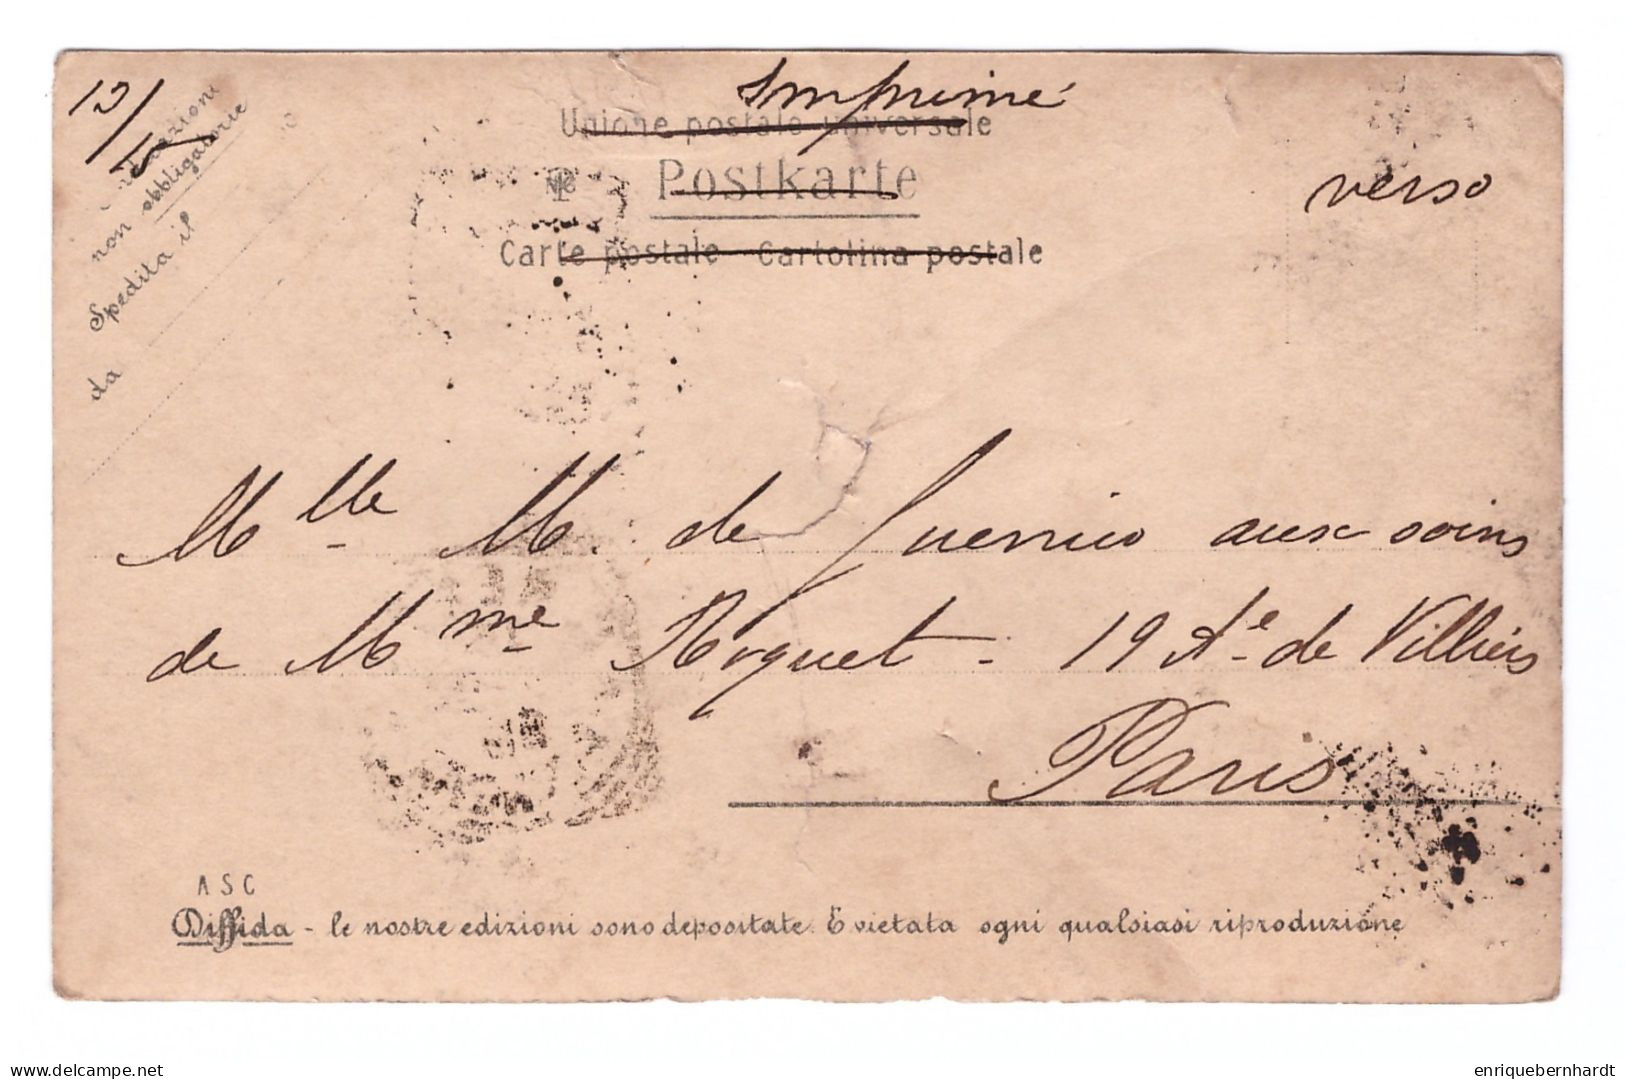 12/5
Imprimé
Unione postale universale
Postkarte
verso
Carte postale - Cartolina postale
non obbligatorie
Spedita il
da
Mlle M. de Guernico aux soins
de Mme Roquet - 19 Ae de Villiers
Paris
ASC
Diffida - le nostre edizioni sono depositate. È vietata ogni qualsiasi riproduzione
enriquebernhardt